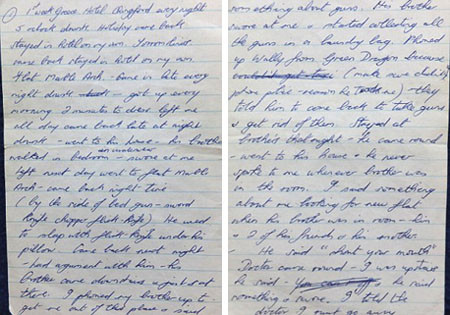 1
1st week Grove Hotel Chingford every night
5 o'clock drunk. Holiday came back
stayed in Hotel on my own.
came back stayed in Hotel on my own
Flat Marble Arch. Came in late every
night drunk got up every
morning 2 minutes to dress left me
all day came back late at night
drunk - went to his house - his brother
walked in bedroom - swore at me
left next day went to flat Marble
Arch - came back night
(by the side of bed gun - sword
Knife chopper flick Knife) He used
to sleep with flick Knife under his
pillow. Came back next night
- had argument with him - his
brother came downstairs
there. I phoned my brother up to
get me out of this place & said
something about guns. His brother
swore at me & started collecting all
the guns in a laundry bag. Phoned
up Wally from Green Dragon because
(make sure
phone reason he me) - they
told him to come back to take guns
& get rid of them. Stayed at
brothers that night - He came round
- went to his house & he never
spoke to me whenever brother was
in the room. I said something
about me looking for new flat
when his brother was in room - him
& 2 of his friends & his mother
- He said "shut your mouth"
Doctor came round - I was upstairs
he said - he said
something & swore. I told the
doctor I must go away